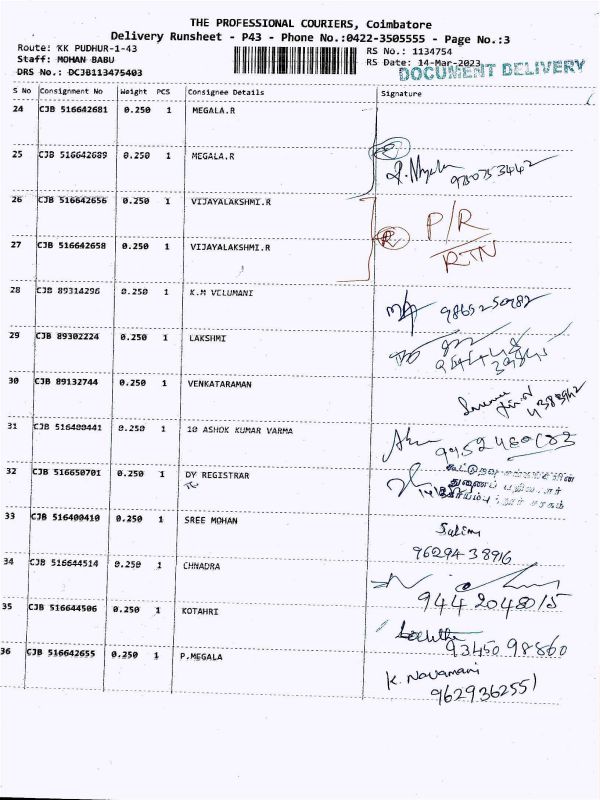 THE PROFESSIONAL COURIERS, Coimbatore
Delivery Runsheet - P43 - Phone No.:0422-3505555 - Page No.:3
Route: KK PUDHUR-1-43 RS No.: 1134754
Staff: MOHAN BABU RS Date: 14-Mar-2023
DRS No.: DCJB113475403 DOCUMENT DELIVERY
S No Consignment No Weight PCS Consignee Details Signature
24 CJB 516642681 0.250 1 MEGALA.R
25 CJB 516642689 0.250 1 MEGALA.R
26 CJB 516642656 0.250 1 VIJAYALAKSHMI.R P/R
27 CJB 516642658 0.250 1 VIJAYALAKSHMI.R RTN
28 CJB 89314296 0.250 1 K.M VELUMANI 9865250982
29 CJB 89302224 0.250 1 LAKSHMI
30 CJB 89132744 0.250 1 VENKATARAMAN
31 CJB 516400441 0.250 1 10 ASHOK KUMAR VARMA
32 CJB 516650701 0.250 1 DY REGISTRAR
33 CJB 516400410 0.250 1 SREE MOHAN
9629438916
34 CJB 516644514 0.250 1 CHNADRA
9442048015
35 CJB 516644506 0.250 1 KOTAHRI
9345098860
36 CJB 516642655 0.250 1 P.MEGALA K. Navamani
9629362551